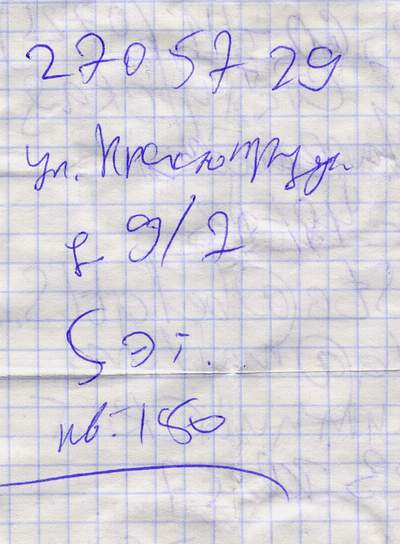 270 57 29
ул.
д 9/2
5 эт.
кв. 180